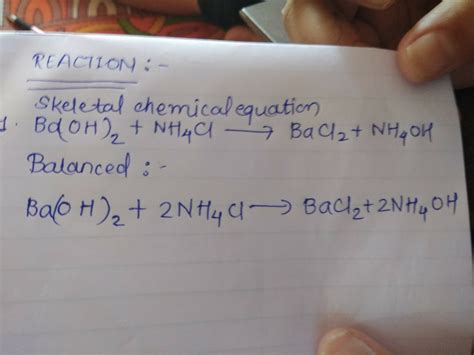 REACTION :-
Skeletal chemical equation
1. Ba(OH)₂ + NH₄Cl ⟶ BaCl₂ + NH₄OH
Balanced :-
Ba(OH)₂ + 2NH₄Cl ⟶ BaCl₂ + 2NH₄OH